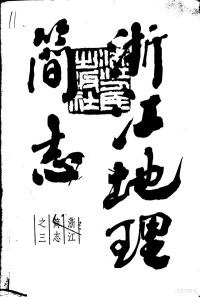 浙江地理
简志
浙江人民
出版社
浙江
简志
之三